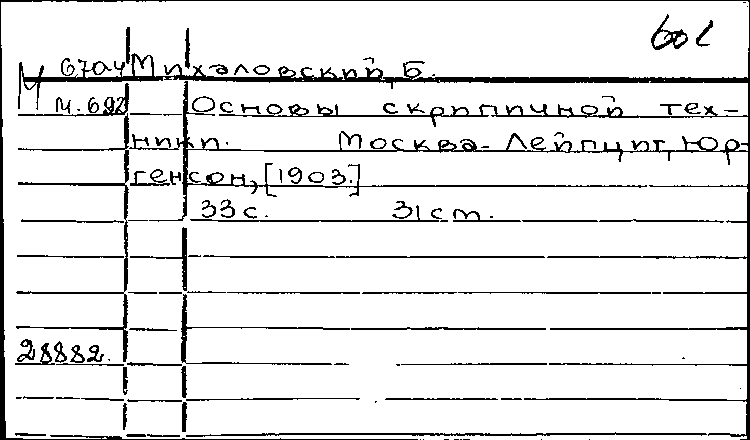 М 6704 Михаловский, Б.
М.692 Основы скрипичной тех-
ники. Москва-Лейпциг, Юр-
генсон, [1903.]
33 с. 31 cm.
28882.